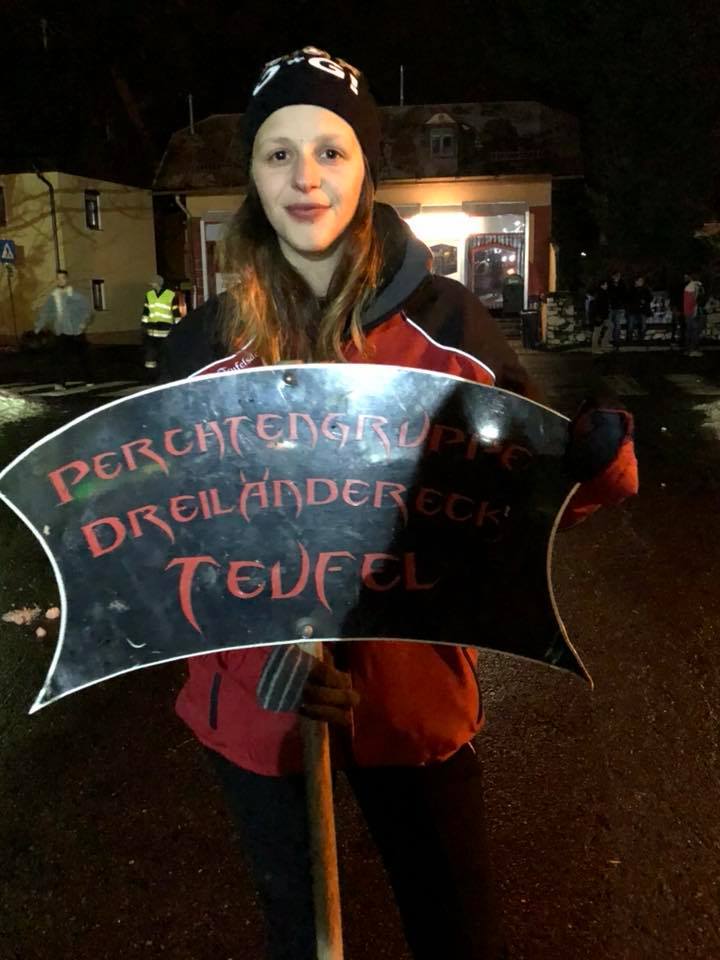 PERCHTENGRUPPE
DREILÄNDERECK'
TEUFEL